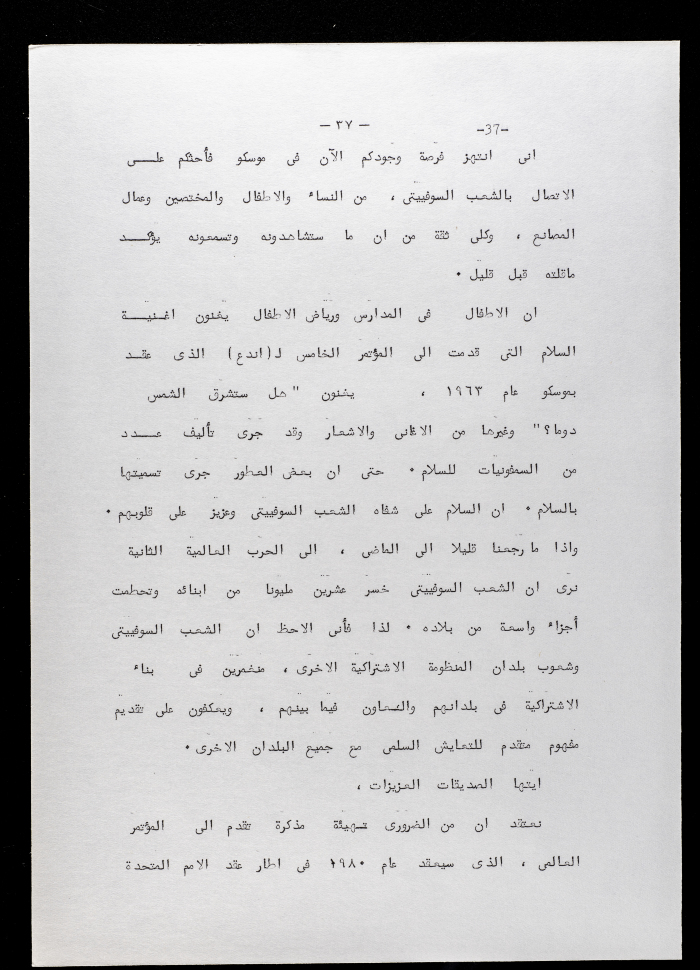 - ٣٧ -
-37-
انى انتهز فرصة وجودكم الآن فى موسكو فأحثكم علـــى
الاتصال بالشعب السوفييتى ، من النساء والاطفال والمختصين وعمال
المصانع ، وكلى ثقة من ان ما ستشاهدونه وتسمعونه يؤكــد
ماقلته قبل قليل ٠
ان الاطفال فى المدارس ورياض الاطفال يغنون اغـنيـة
السلام التى قدمت الى المؤتمر الخامس لـ (اندع) الذى عقـد
بموسكو عام ١٩٦٣ ، يغنون " هل ستشرق الشمس
دوما؟" وغيرها من الاغانى والاشعار وقد جرى تأليف عــدد
من السمفونيات للسلام ٠ حتى ان بعض العطور جرى تسميتها
بالسلام ٠ ان السلام على شفاه الشعب السوفييتى وعزيز على قلوبهم ٠
واذا ما رجعنا قليلا الى الماضى ، الى الحرب العالمية الثانية
نرى ان الشعب السوفييتى خسر عشرين مليونا من ابنائه وتحطمت
أجزاء واسعة من بلاده ٠ لذا فأنى الاحظ ان الشعب السوفييتى
وشعوب بلدان المنظومة الاشتراكية الاخرى ، منغمرين فى بناء
الاشتراكية فى بلدانهم والتعاون فيما بينهم ، ويعكفون على تقديم
مفهوم متقدم للتعايش السلمى مع جميع البلدان الاخرى ٠
ايتها الصديقات العزيزات ،
نعتقد ان من الضرورى تهيئة مذكرة تقدم الى المؤتمر
العالمى ، الذى سيعقد عام ١٩٨٠ فى اطار عقد الامم المتحدة